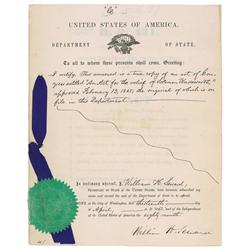 UNITED STATES OF AMERICA.
DEPARTMENT OF STATE.
To all to whom these presents shall come, Greeting:
I certify, That annexed is a true copy of an Act of Con-
gress entitled "An Act for the relief of Solomon Wadsworth,"
approved February 13, 1865, the original of which is on
file in this Department.
In testimony whereof, I, William H. Seward,
Secretary of State of the United States, have hereunto subscribed my
name and caused the seal of the Department of State to be affixed.
Done at the City of Washington, this thirteenth day of
April, A. D. 1865, and of the Independence of the
United States of America the eighty-ninth.
William H. Seward